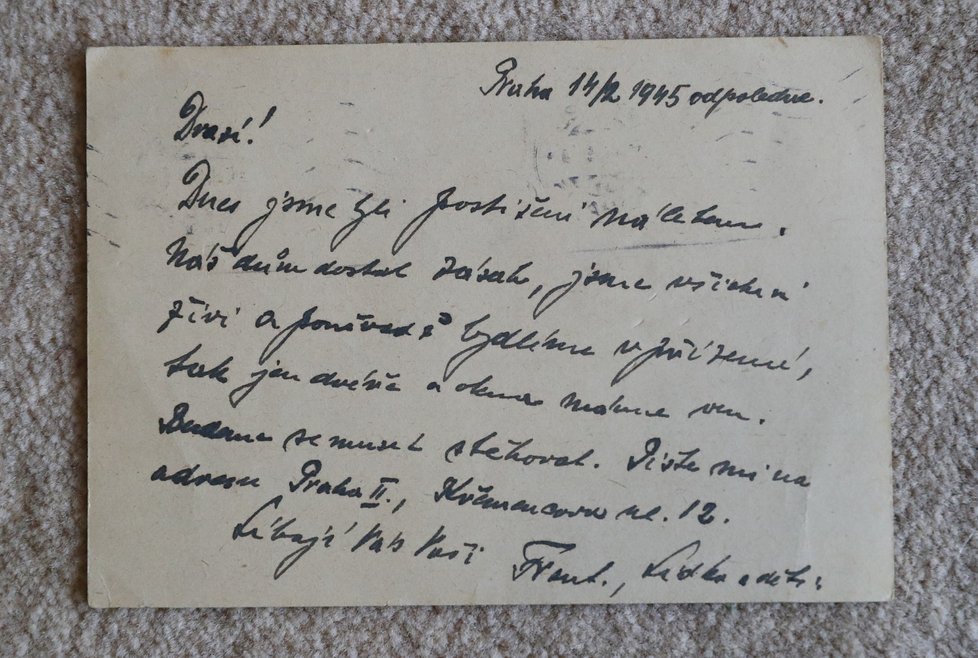 Praha 14/2 1945 odpoledne.
Drazí!
Dnes jsme byli postiženi náletem.
Náš dům dostal zásah, jsme všichni
živi a poněvadž bydlíme v přízemí,
tak jen dvéře a okna máme ven.
Budeme se muset stěhovat. Pište mi na
adresu Praha II., Křemencova ul. 12.
Líbají Vás Vaši
Frant., Lidka a děti.